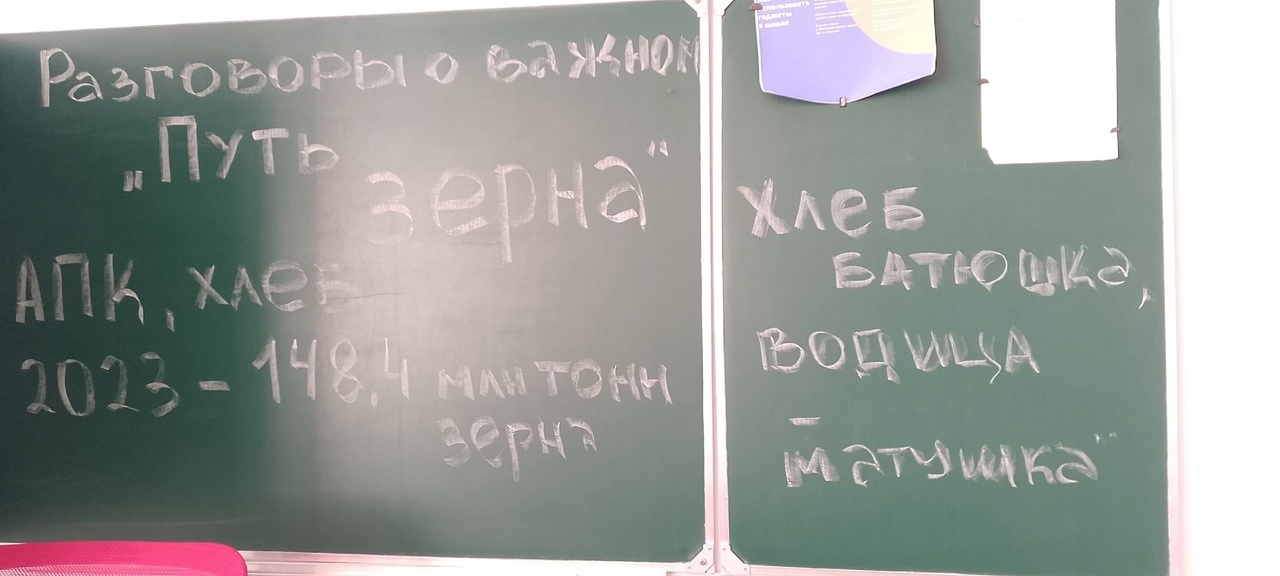 Разговоры о важном
„Путь
зерна“
АПК, хлеб
2023 - 148,4 млн тонн
зерна
использовать
гаджеты
в школе
Хлеб
БАТЮШКа,
ВОДИЦА
-
матушка"